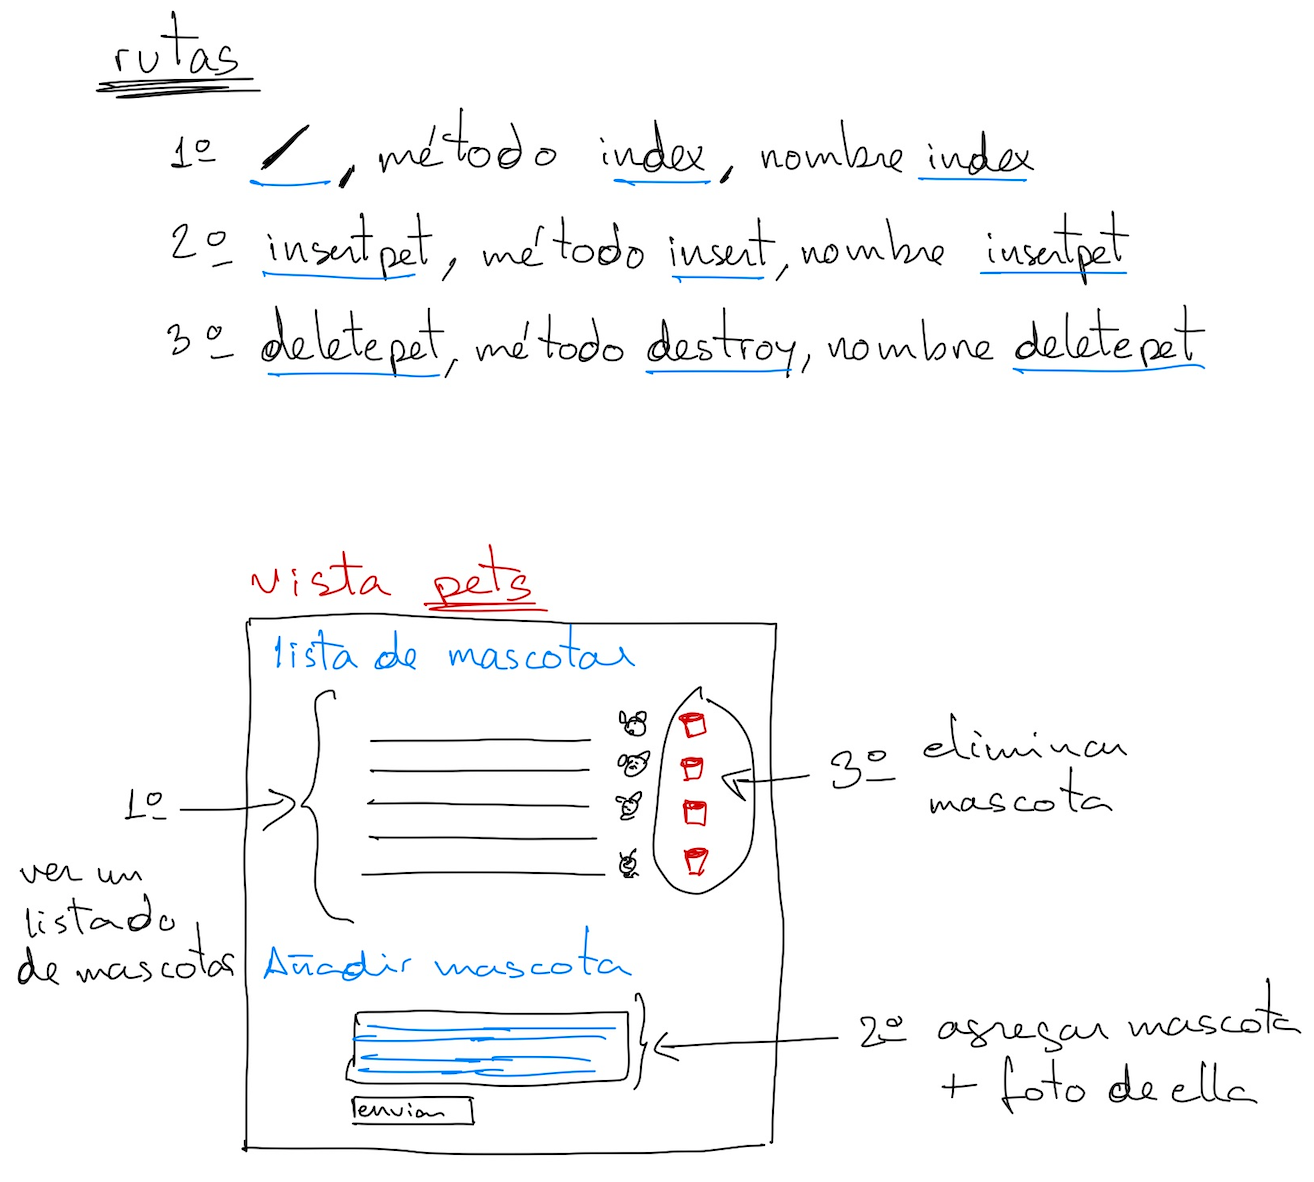 rutas
1º /, método index, nombre index
2º insertpet, método insert, nombre insertpet
3º deletepet, método destroy, nombre deletepet
vista pets
lista de mascotas
1º
ver un
listado
de mascotas
3º eliminar
mascota
Añadir mascota
2º agregar mascota
+ foto de ella
enviar